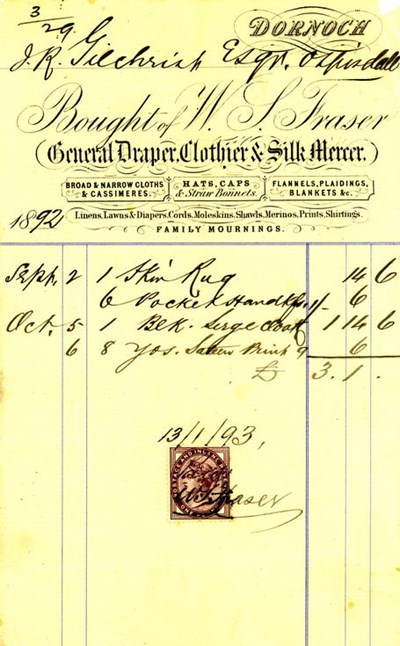 3
29 G
DORNOCH
J. R. Gilchrist Esqr. Ospisdale
Bought of W. S. Fraser
(General Draper, Clothier & Silk Mercer.)
BROAD & NARROW CLOTHS & CASSIMERES.
HATS, CAPS & Straw Bonnets.
FLANNELS, PLAIDINGS, BLANKETS &c.
1892
Linens, Lawns & Diapers, Cords, Moleskins, Shawls, Merinos, Prints, Shirtings.
FAMILY MOURNINGS.
Sept. 2 1 Skin Rug 14 6
6 Pocket Handkfs. 1/- 6
Oct. 5 1 Blk. Serge 1 14 6
6 8 Yds. Print 9 6
£ 3. 1.
13/1/93,
W. S. Fraser